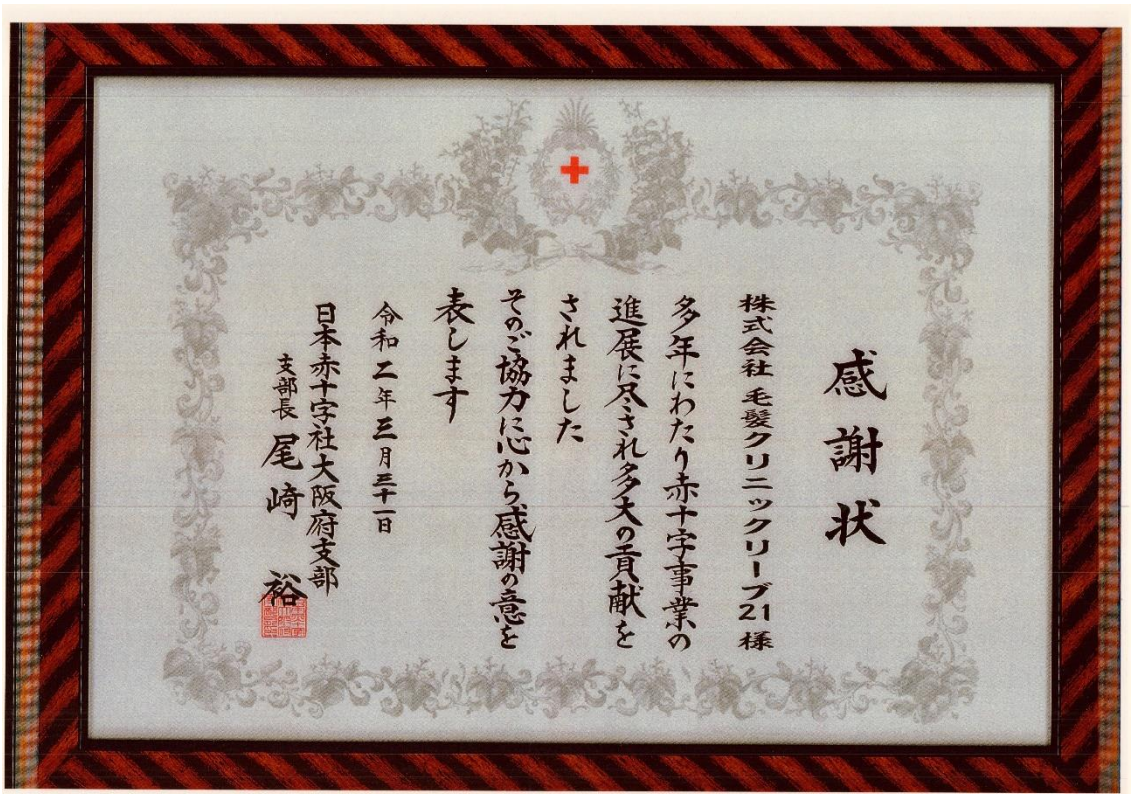 感謝状
株式会社 毛髪クリニックリーブ21 様
多年にわたり赤十字事業の
進展に尽され多大の貢献を
されました
そのご協力に心から感謝の意を
表します
令和二年三月三十一日
日本赤十字社大阪府支部
支部長 尾崎 裕